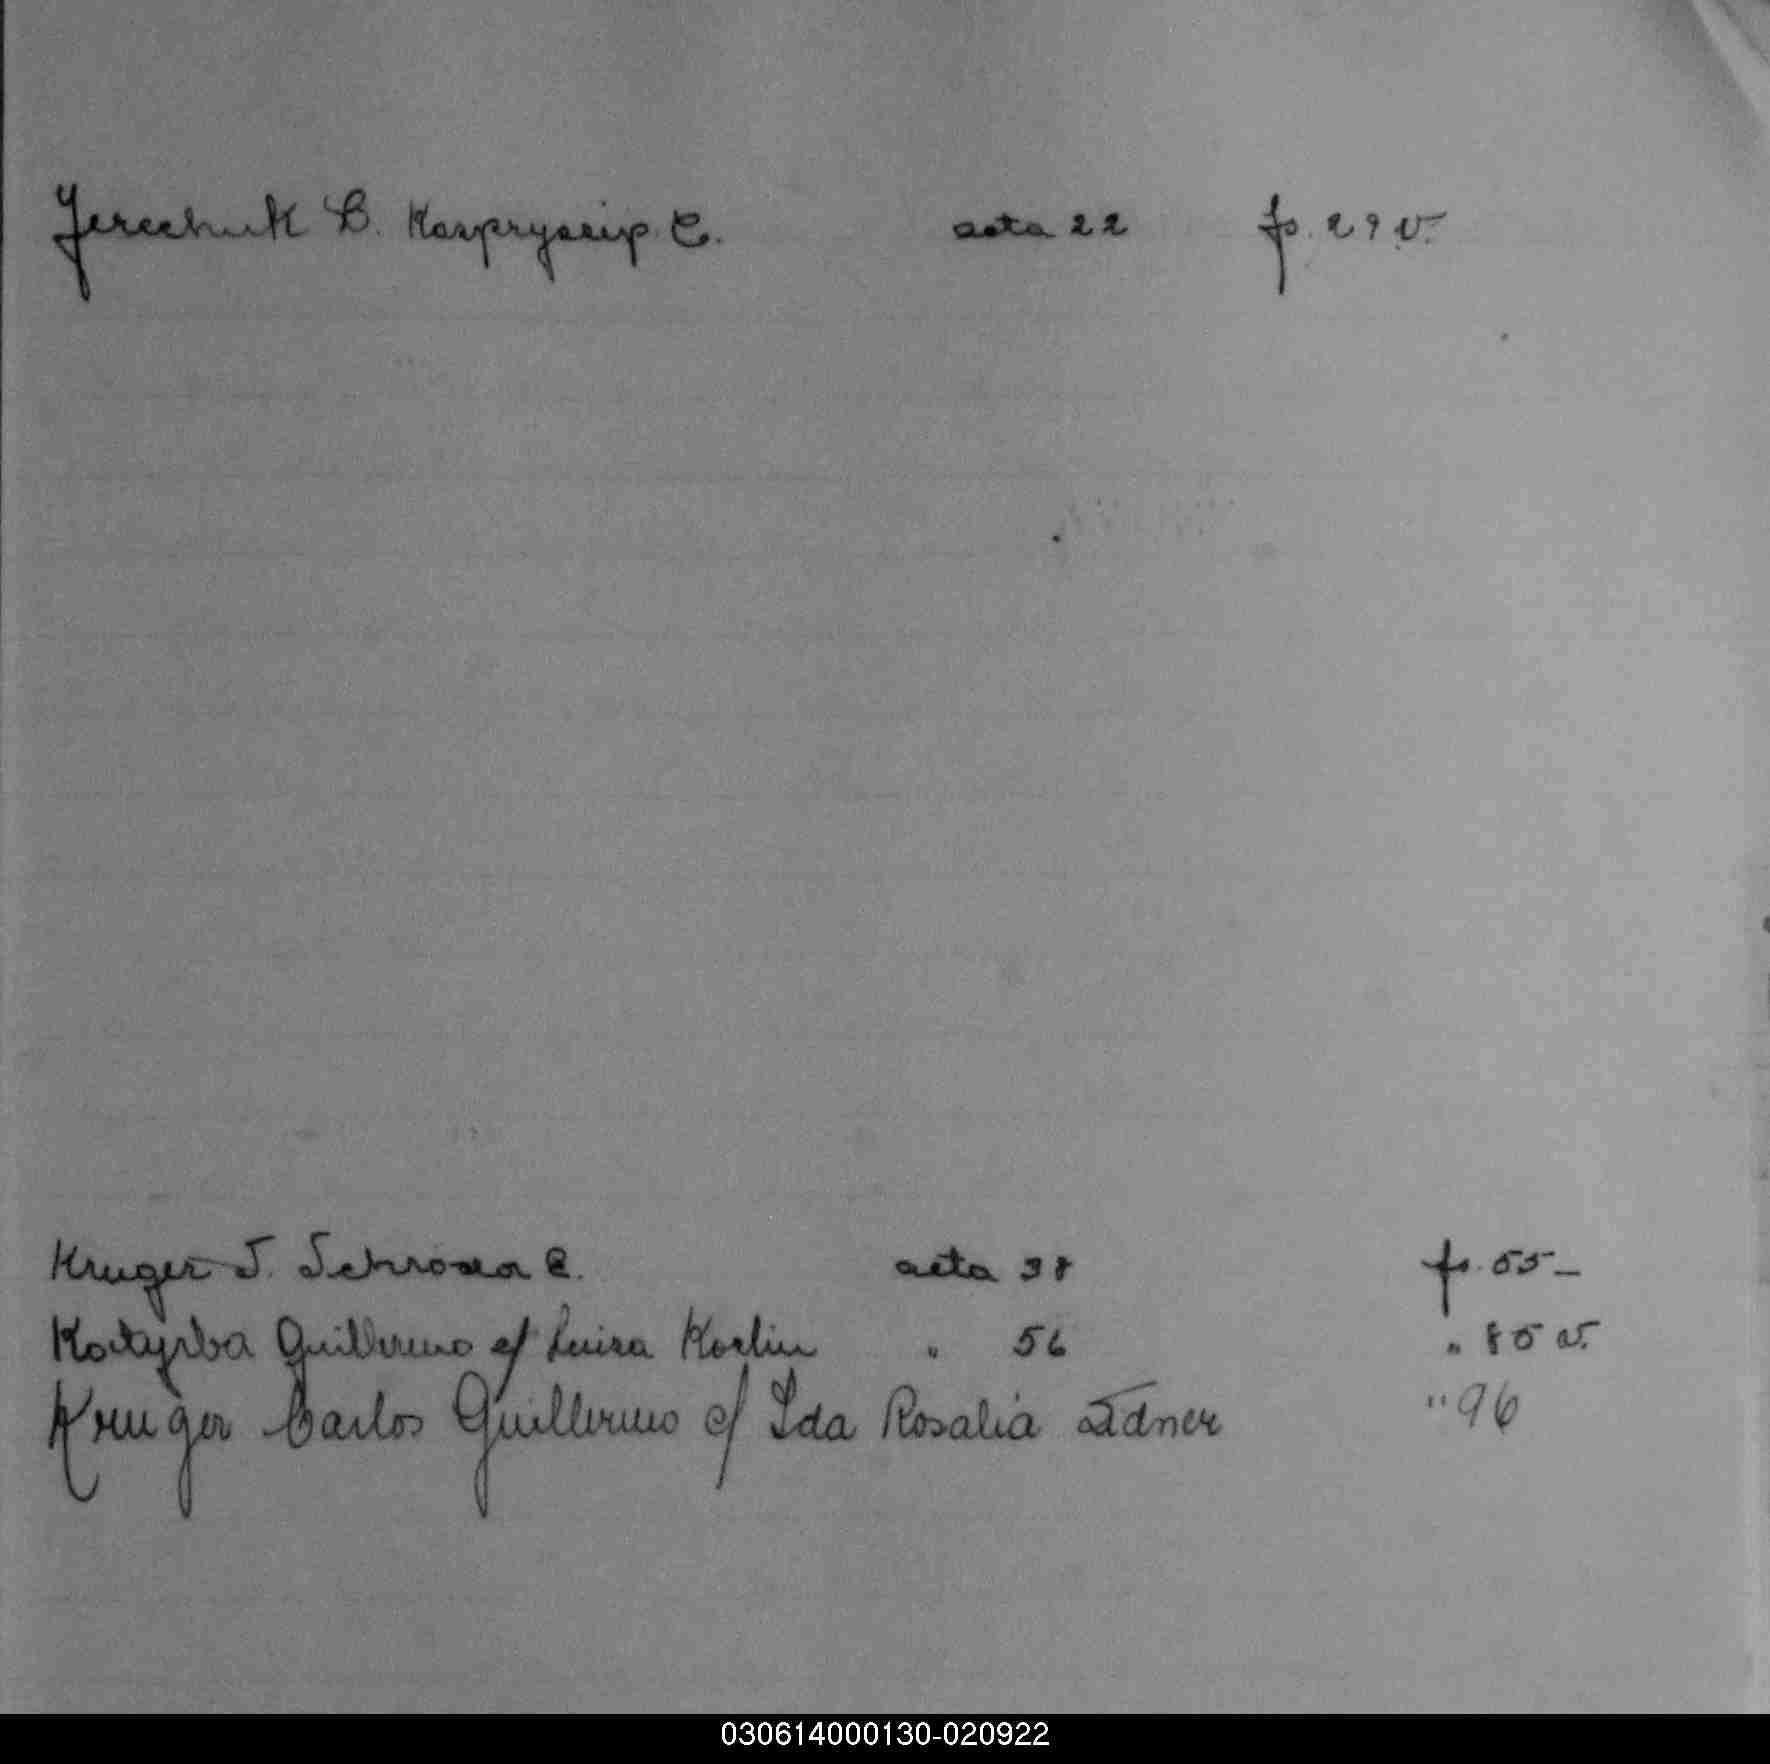 Jerechuk B. Kaspryscip C. acta 22 fs. 29 v.
Kruger T. Schroder E. acta 38 fs. 55 _
Kotyrba Guillermo c/ Luisa Korlin " 56 " 85 v.
Kruger Carlos Guillermo c/ Ida Rosalia Lidner " 96
030614000130-020922